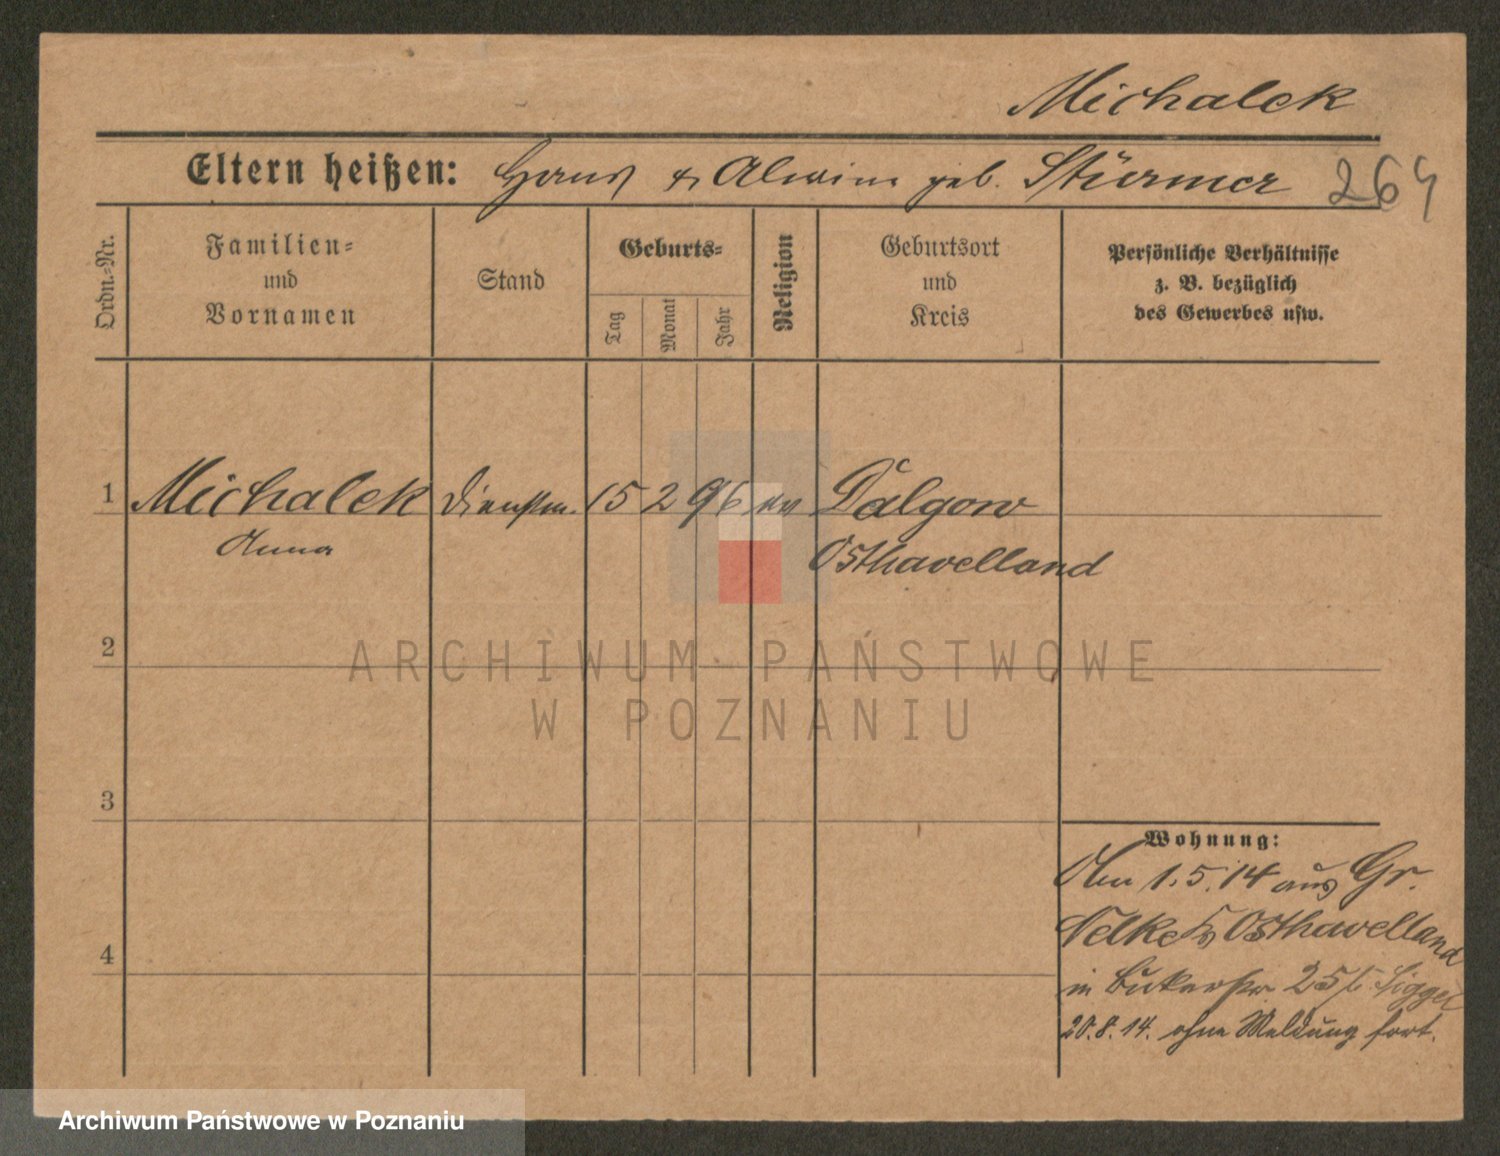 Michalek
Eltern heißen: Hans & Alwine geb. Stürmer 264
Ordn.-Nr.
Familien-
und
Vornamen
Stand
Geburts-
Tag
Monat
Jahr
Religion
Geburtsort
und
Kreis
Persönliche Verhältnisse
z. B. bezüglich
des Gewerbes usw.
1 Michalek Dienstm. 15 2 96 ev Dalgow
Anna Osthavelland
2
ARCHIWUM PAŃSTWOWE
W POZNANIU
3
Wohnung:
Am 1.5.14 aus Gr.
Osthavelland
4
in Bukerstr 25
20.8.14. ohne Meldung fort.
Archiwum Państwowe w Poznaniu